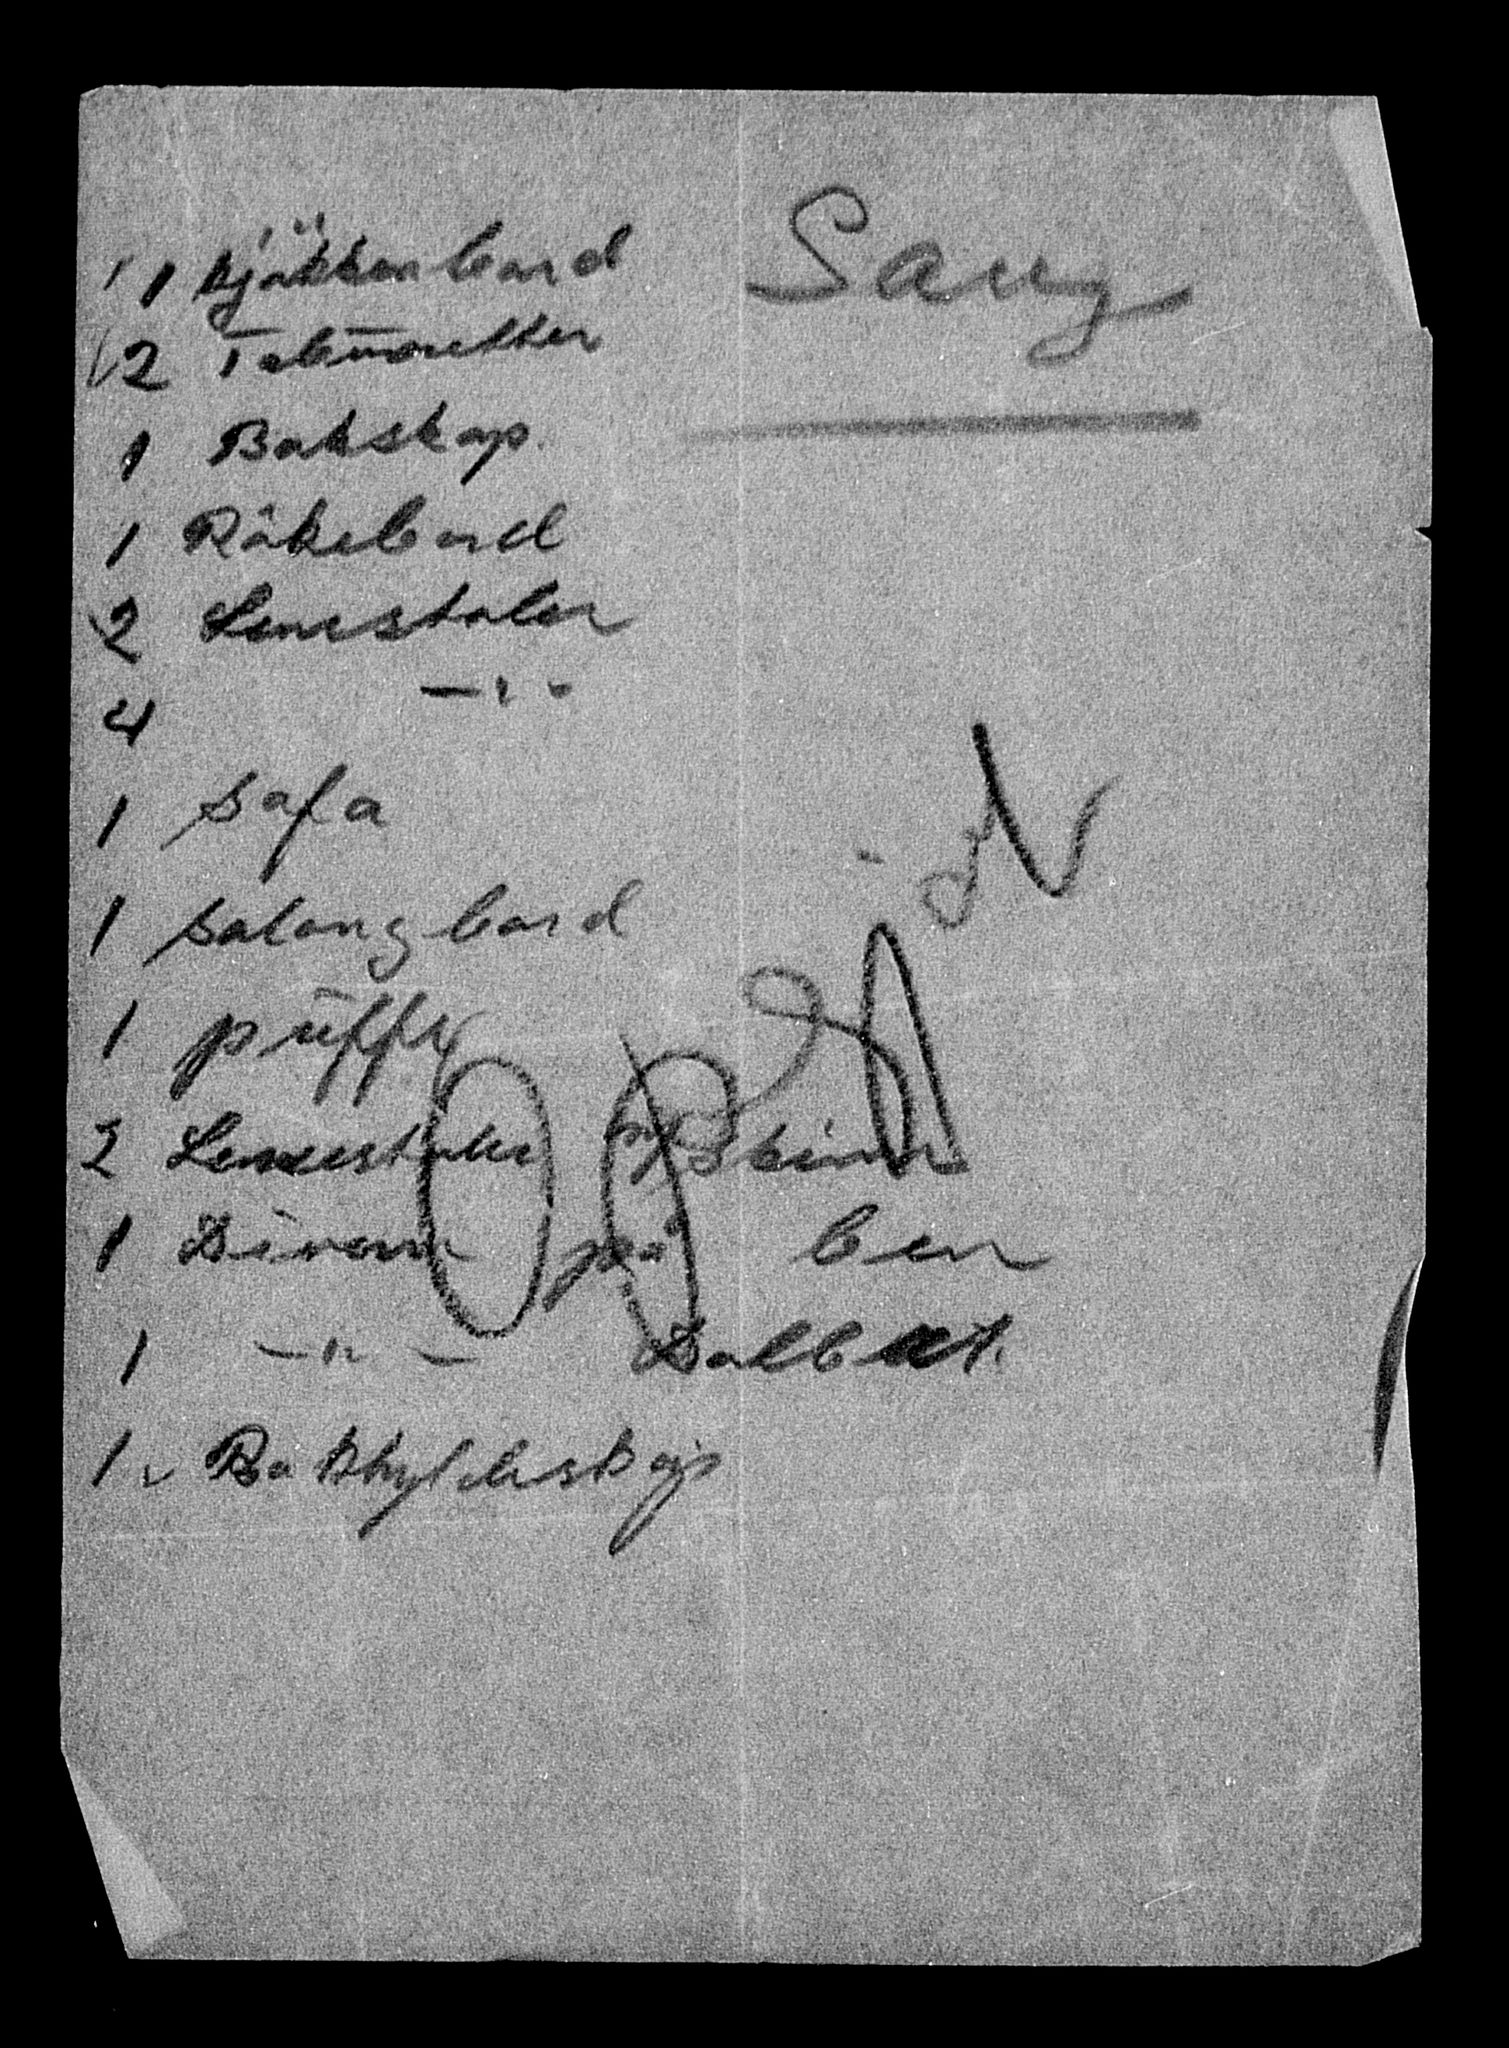 Sang
1 Kjökkenbord
2 Taburetter
1 Bokskap.
1 Rökebord
2 Lenestoler
4 — " -
1 Sofa
1 Salongbord
1 püff
2 Lenestoler m/skinn
1 Divan på ben
1 — " — Dolbelt.
1 Bokhyldeskap